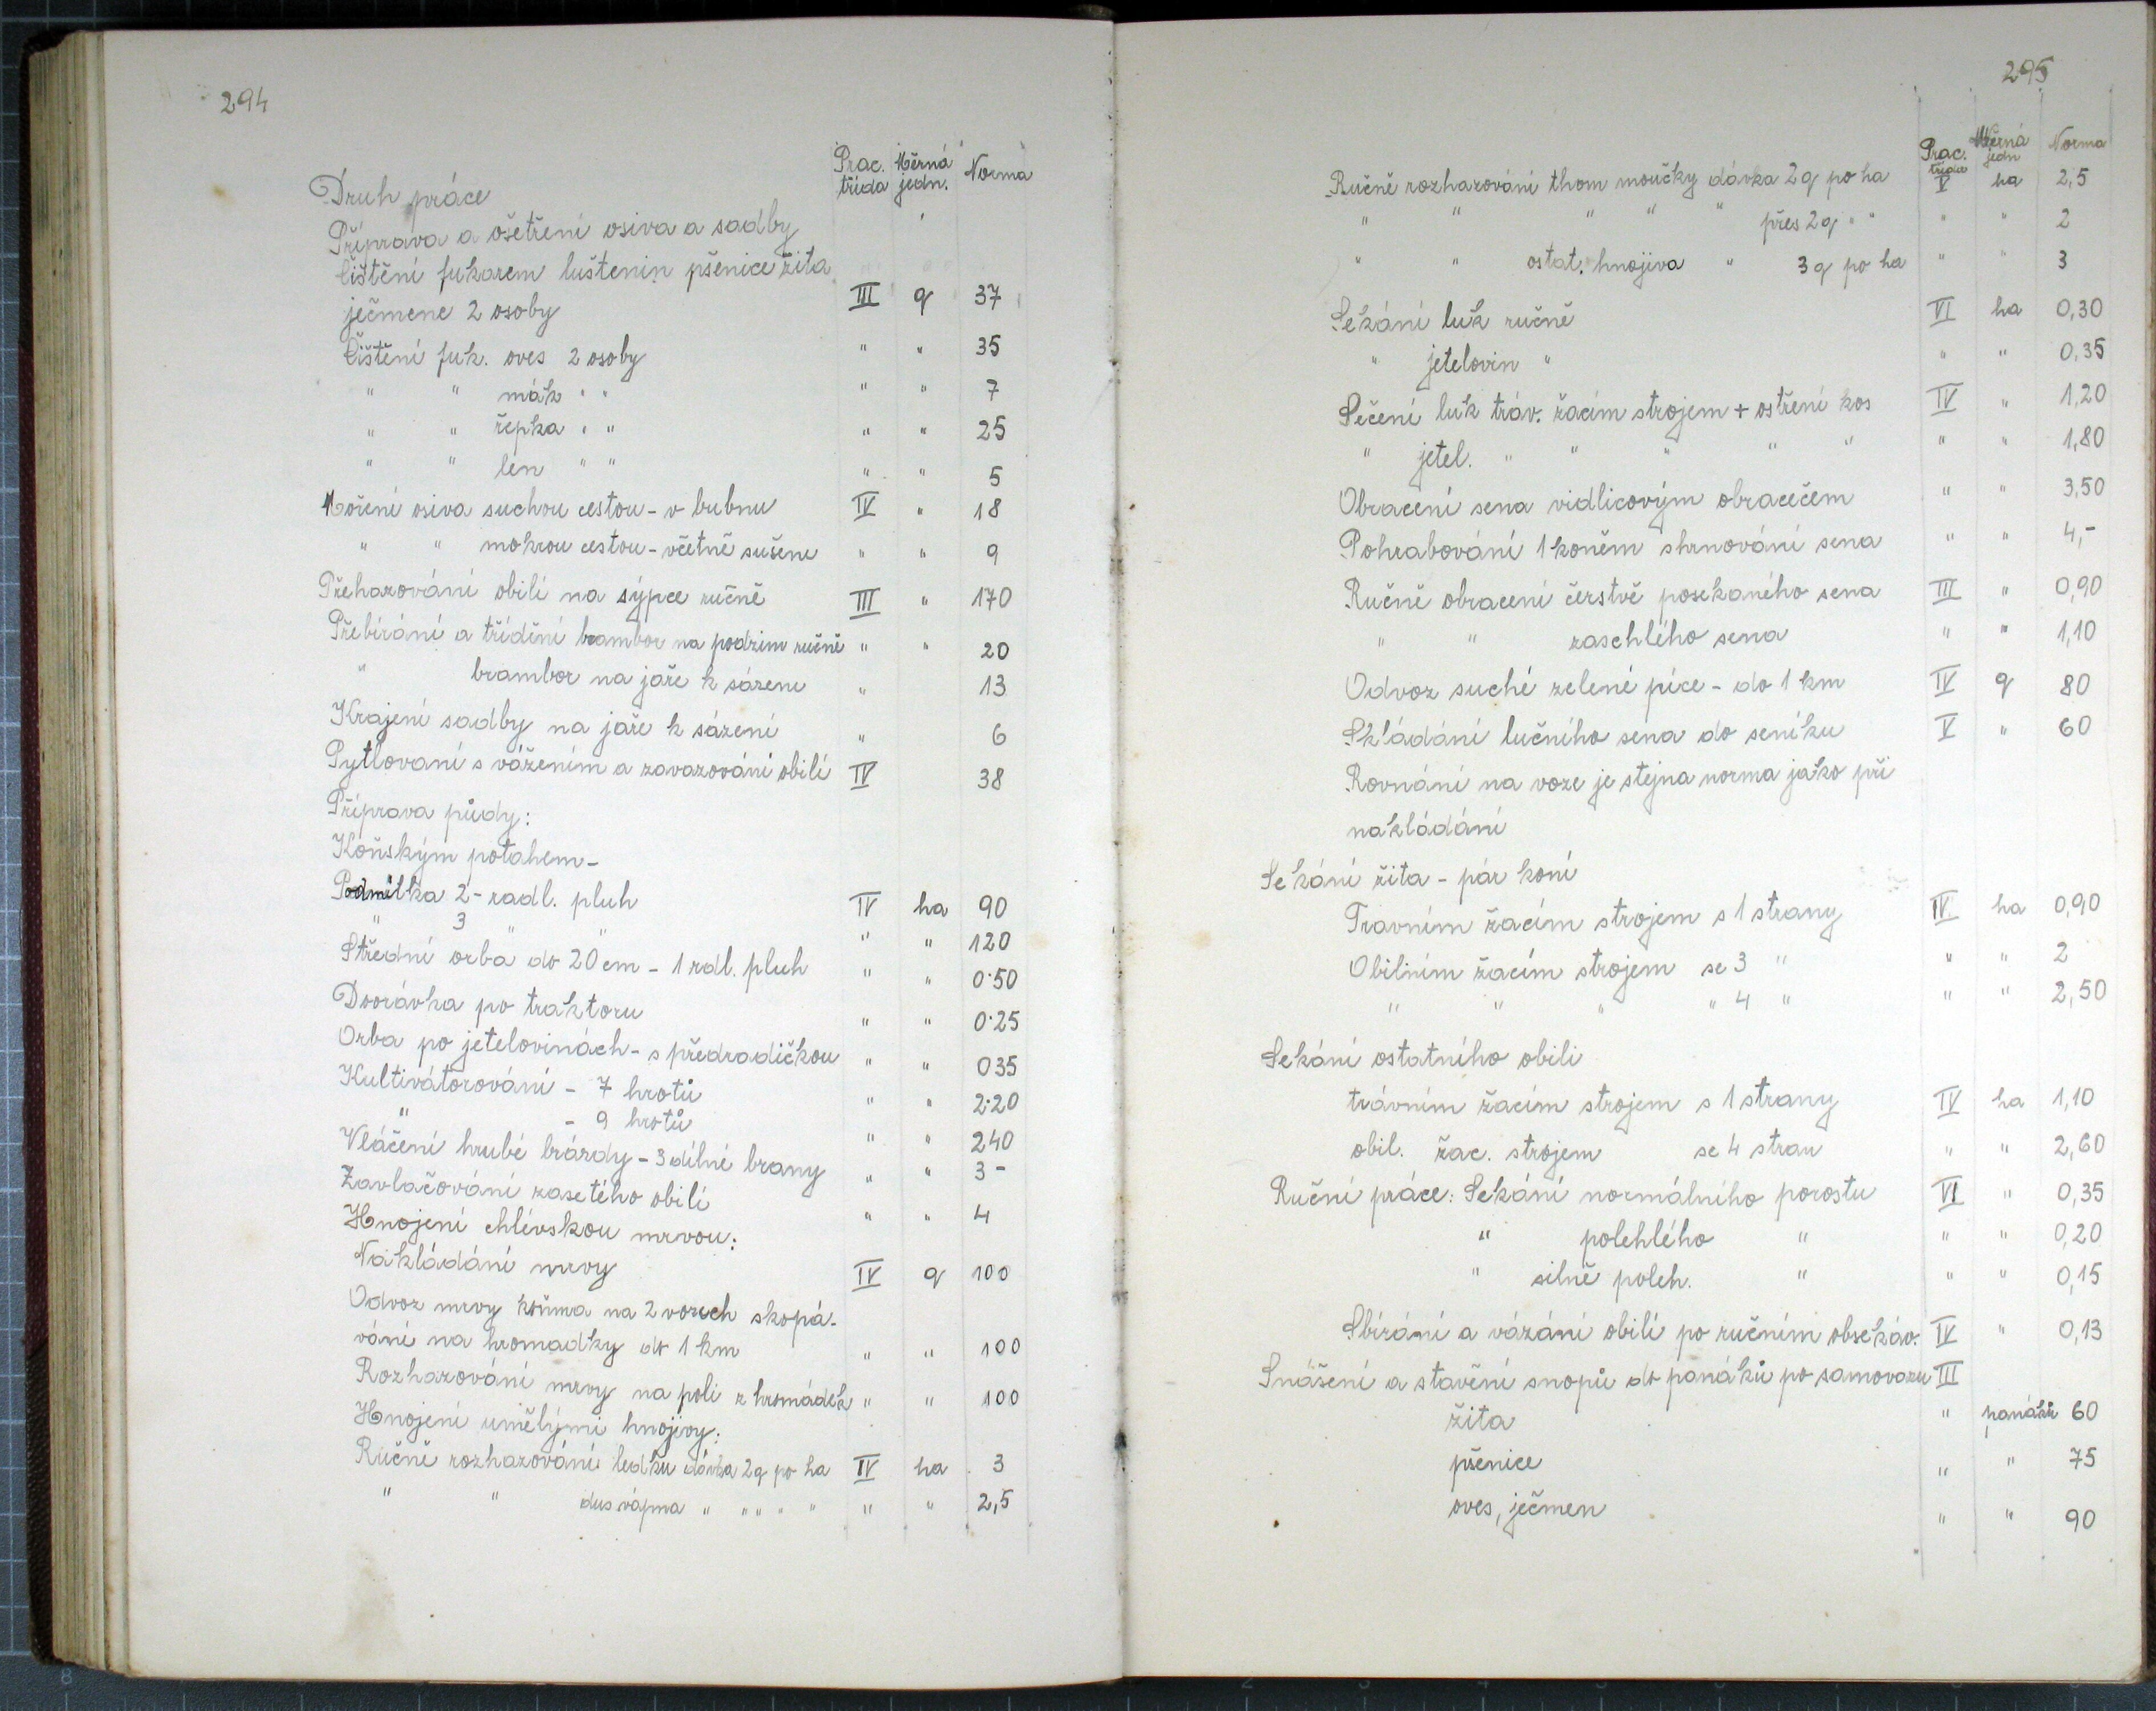 294
Druh práce Prac. třída Měrná jedn. Norma
Příprava a ošetření osiva a sadby
Čištění fukarem luštenin pšenice žita
ječmene 2 osoby III q 37
Čištění fuk. oves 2 osoby " " 35
" " mák " " " " 7
" " řepka " " " " 25
" " len " " " " 5
Moření osiva suchou cestou - v bubnu IV " 18
" " mokrou cestou - včetně sušení " " 9
Přehazování obilí na sýpce ručně III " 170
Přebírání a třídění brambor na podzim ručně " " 20
" brambor na jaře k sázení " 13
Krajení sadby na jaře k sázení " 6
Pytlovaní s vážením a zavazování obilí IV 38
Příprava půdy:
Koňským potahem -
Podmítka 2 - radl. pluh IV ha 90
" 3 " " " " 120
Střední orba do 20 cm - 1 rdl. pluh " " 0·50
Doorávka po traktoru " " 0·25
Orba po jetelovinách - s předradičkou " " 035
Kultivátorování - 7 hrotů " " 2·20
" - 9 hrotů " " 240
Vláčení hrubé brázdy - 3 dílné brany " " 3 -
Zavlačování zasetého obilí " " 4
Hnojení chlévskou mrvou:
Nakládání mrvy IV q 100
Odvoz mrvy koňma na 2 vozech skopá-
vání na hromadky do 1 km " " 100
Rozhazování mrvy na poli z hromádek " " 100
Hnojení umělými hnojivy:
Ručně rozhazování ledku dávka 2q po ha IV ha 3
" " dus vápna " " " " " " " 2,5
295
Prac. třída Měrná jedn Norma
Ručně rozhazování thom moučky dávka 2 q po ha V ha 2,5
" " " " " přes 2 q " " " " 2
" " ostat. hnojiva " 3 q po ha " " 3
Sekání luk ručně VI ha 0,30
" jetelovin " " " 0,35
Sečení luk tráv. žacím strojem + ostření kos IV " 1,20
" jetel. " " " " " " " 1,80
Obracení sena vidlicovým obracečem " " 3,50
Pohrabování 1 koněm shrnování sena " " 4,-
Ručně obracení čerstvě posekaného sena III " 0,90
" " zaschlého sena " " 1,10
Odvoz suché zelené píce - do 1 km IV q 80
Skládání lučního sena do seníku V " 60
Rovnání na voze je stejna norma jako při
nakládání
Sekání žita - pár koní
Travním žacím strojem s 1 strany IV ha 0,90
Obilním žacím strojem se 3 " " " 2
" " " " 4 " " " 2,50
Sekání ostatního obilí
trávním žacím strojem s 1 strany IV ha 1,10
obil. žac. strojem se 4 stran " " 2,60
Ruční práce: Sekání normálního porostu VI " 0,35
" polehlého " " " 0,20
" silně poleh. " " " 0,15
Sbírání a vázání obilí po ručním obsekáv. IV " 0,13
Snášení a stavění snopů do panáků po samovazu III
žita " panáků 60
pšenice " " 75
oves, ječmen " " 90